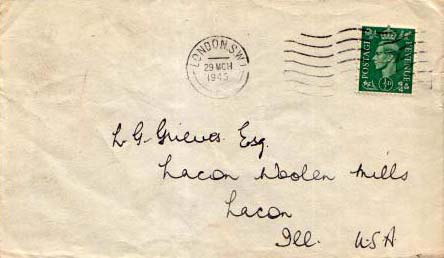 LONDON. S.W.1
29 MCH
1945
POSTAGE REVENUE
½D
L. G. Grieves Esq.
Lacon Woolen Mills
Lacon
Ill. USA